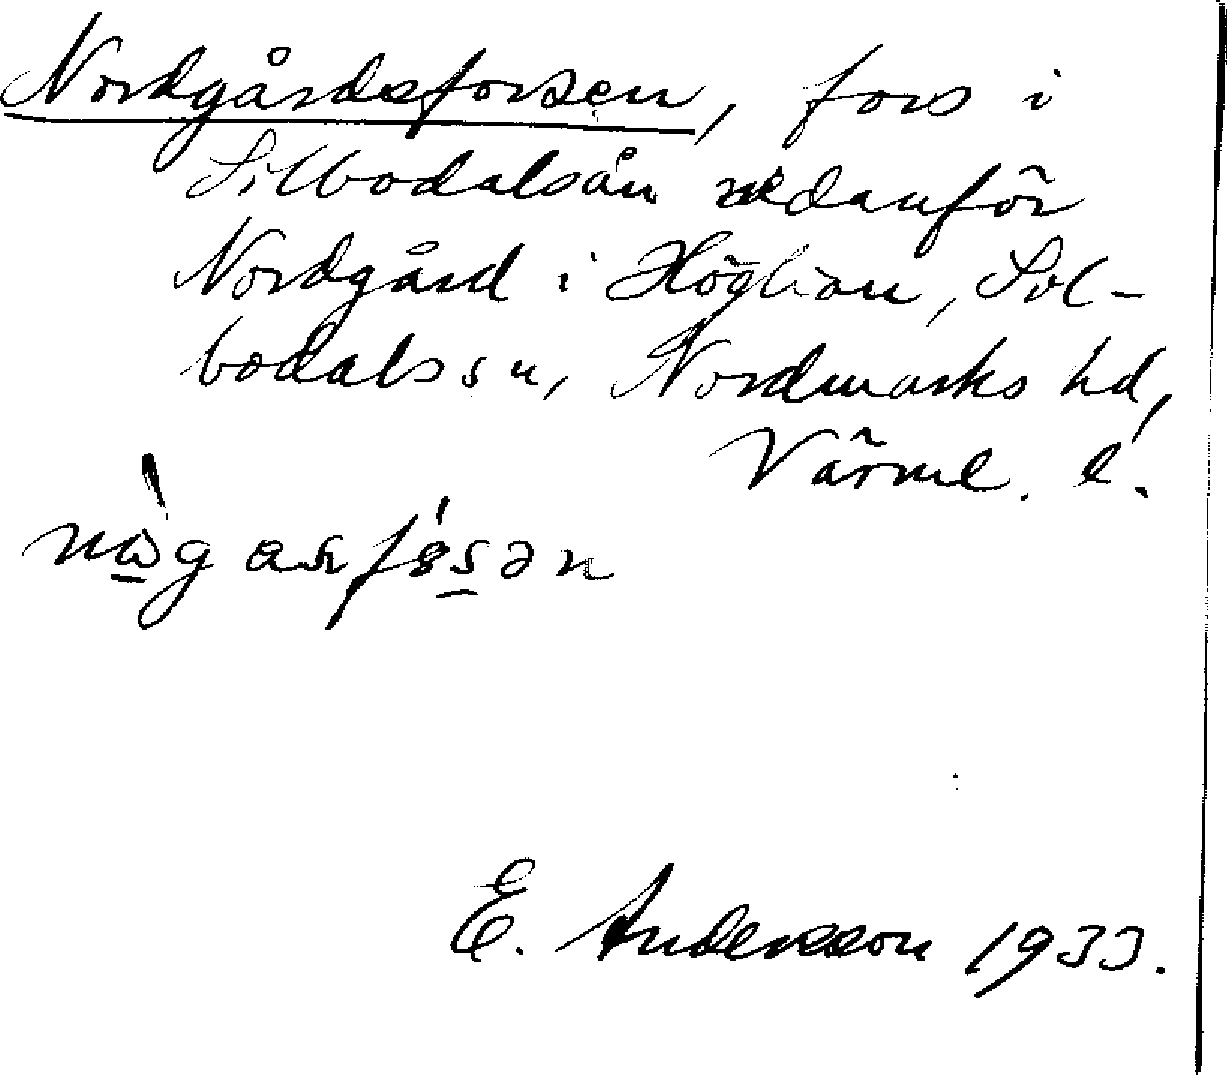 Nordgårdsforsen, fors i
Silbodalsån nedanför
Nordgård i Höglian, Sil-
bodals sn, Nordmarks hd,
Värml. l.
E. Andersson 1933.